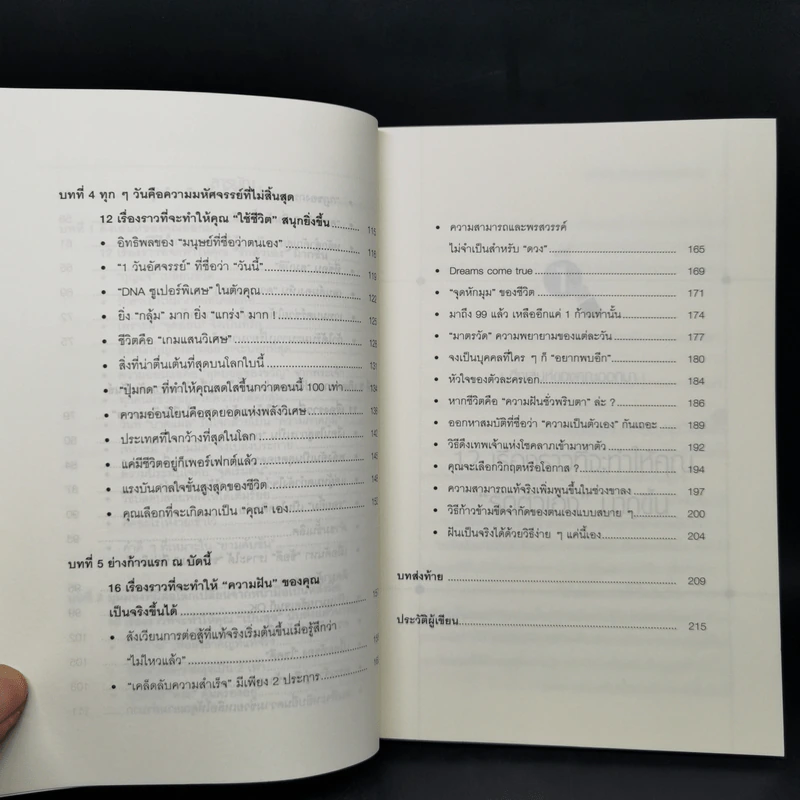 บทที่ 4 ทุก ๆ วันคือความมหัศจรรย์ที่ไม่สิ้นสุด
12 เรื่องราวที่จะทำให้คุณ "ใช้ชีวิต" สนุกยิ่งขึ้น 115
• อิทธิพลของ "มนุษย์ที่ชื่อว่าตนเอง" 116
• "1 วันอัศจรรย์" ที่ชื่อว่า "วันนี้" 119
• "DNA ซูเปอร์พิเศษ" ในตัวคุณ 122
• ยิ่ง "กลุ้ม" มาก ยิ่ง "แกร่ง" มาก ! 125
• ชีวิตคือ "เกมแสนวิเศษ" 128
• สิ่งที่น่าตื่นเต้นที่สุดบนโลกใบนี้ 131
• "ปุ่มกด" ที่ทำให้คุณสดใสขึ้นกว่าตอนนี้ 100 เท่า 134
• ความอ่อนโยนคือสุดยอดแห่งพลังวิเศษ
• ประเทศที่ใจกว้างที่สุดในโลก
• แค่มีชีวิตอยู่ก็เพอร์เฟกต์แล้ว
• แรงบันดาลใจขั้นสูงสุดของชีวิต
• คุณเลือกที่จะเกิดมาเป็น "คุณ" เอง
บทที่ 5 ย่างก้าวแรก ณ บัดนี้
16 เรื่องราวที่จะทำให้ "ความฝัน" ของคุณ
เป็นจริงขึ้นได้
• สังเวียนการต่อสู้ที่แท้จริงเริ่มต้นขึ้นเมื่อรู้สึกว่า
"ไม่ไหวแล้ว"
• "เคล็ดลับความสำเร็จ" มีเพียง 2 ประการ
• ความสามารถและพรสวรรค์
ไม่จำเป็นสำหรับ "ดวง" 165
• Dreams come true 169
• "จุดหักมุม" ของชีวิต 171
• มาถึง 99 แล้ว เหลืออีกแค่ 1 ก้าวเท่านั้น 174
• "มาตรวัด" ความพยายามของแต่ละวัน 177
• จงเป็นบุคคลที่ใคร ๆ ก็ "อยากพบอีก" 180
• หัวใจของตัวละครเอก 184
• หากชีวิตคือ "ความฝันชั่วพริบตา" ล่ะ ? 186
• ออกหาสมบัติที่ชื่อว่า "ความเป็นตัวเอง" กันเถอะ 189
• วิธีดึงเทพเจ้าแห่งโชคลาภเข้ามาหาตัว 192
• คุณจะเลือกวิกฤตหรือโอกาส ? 194
• ความสามารถแท้จริงเพิ่มพูนขึ้นในช่วงขาลง 197
• วิธีก้าวข้ามขีดจำกัดของตนเองแบบสบาย ๆ 200
• ฝันเป็นจริงได้ด้วยวิธีง่าย ๆ แค่นี้เอง 204
บทส่งท้าย 209
ประวัติผู้เขียน 215